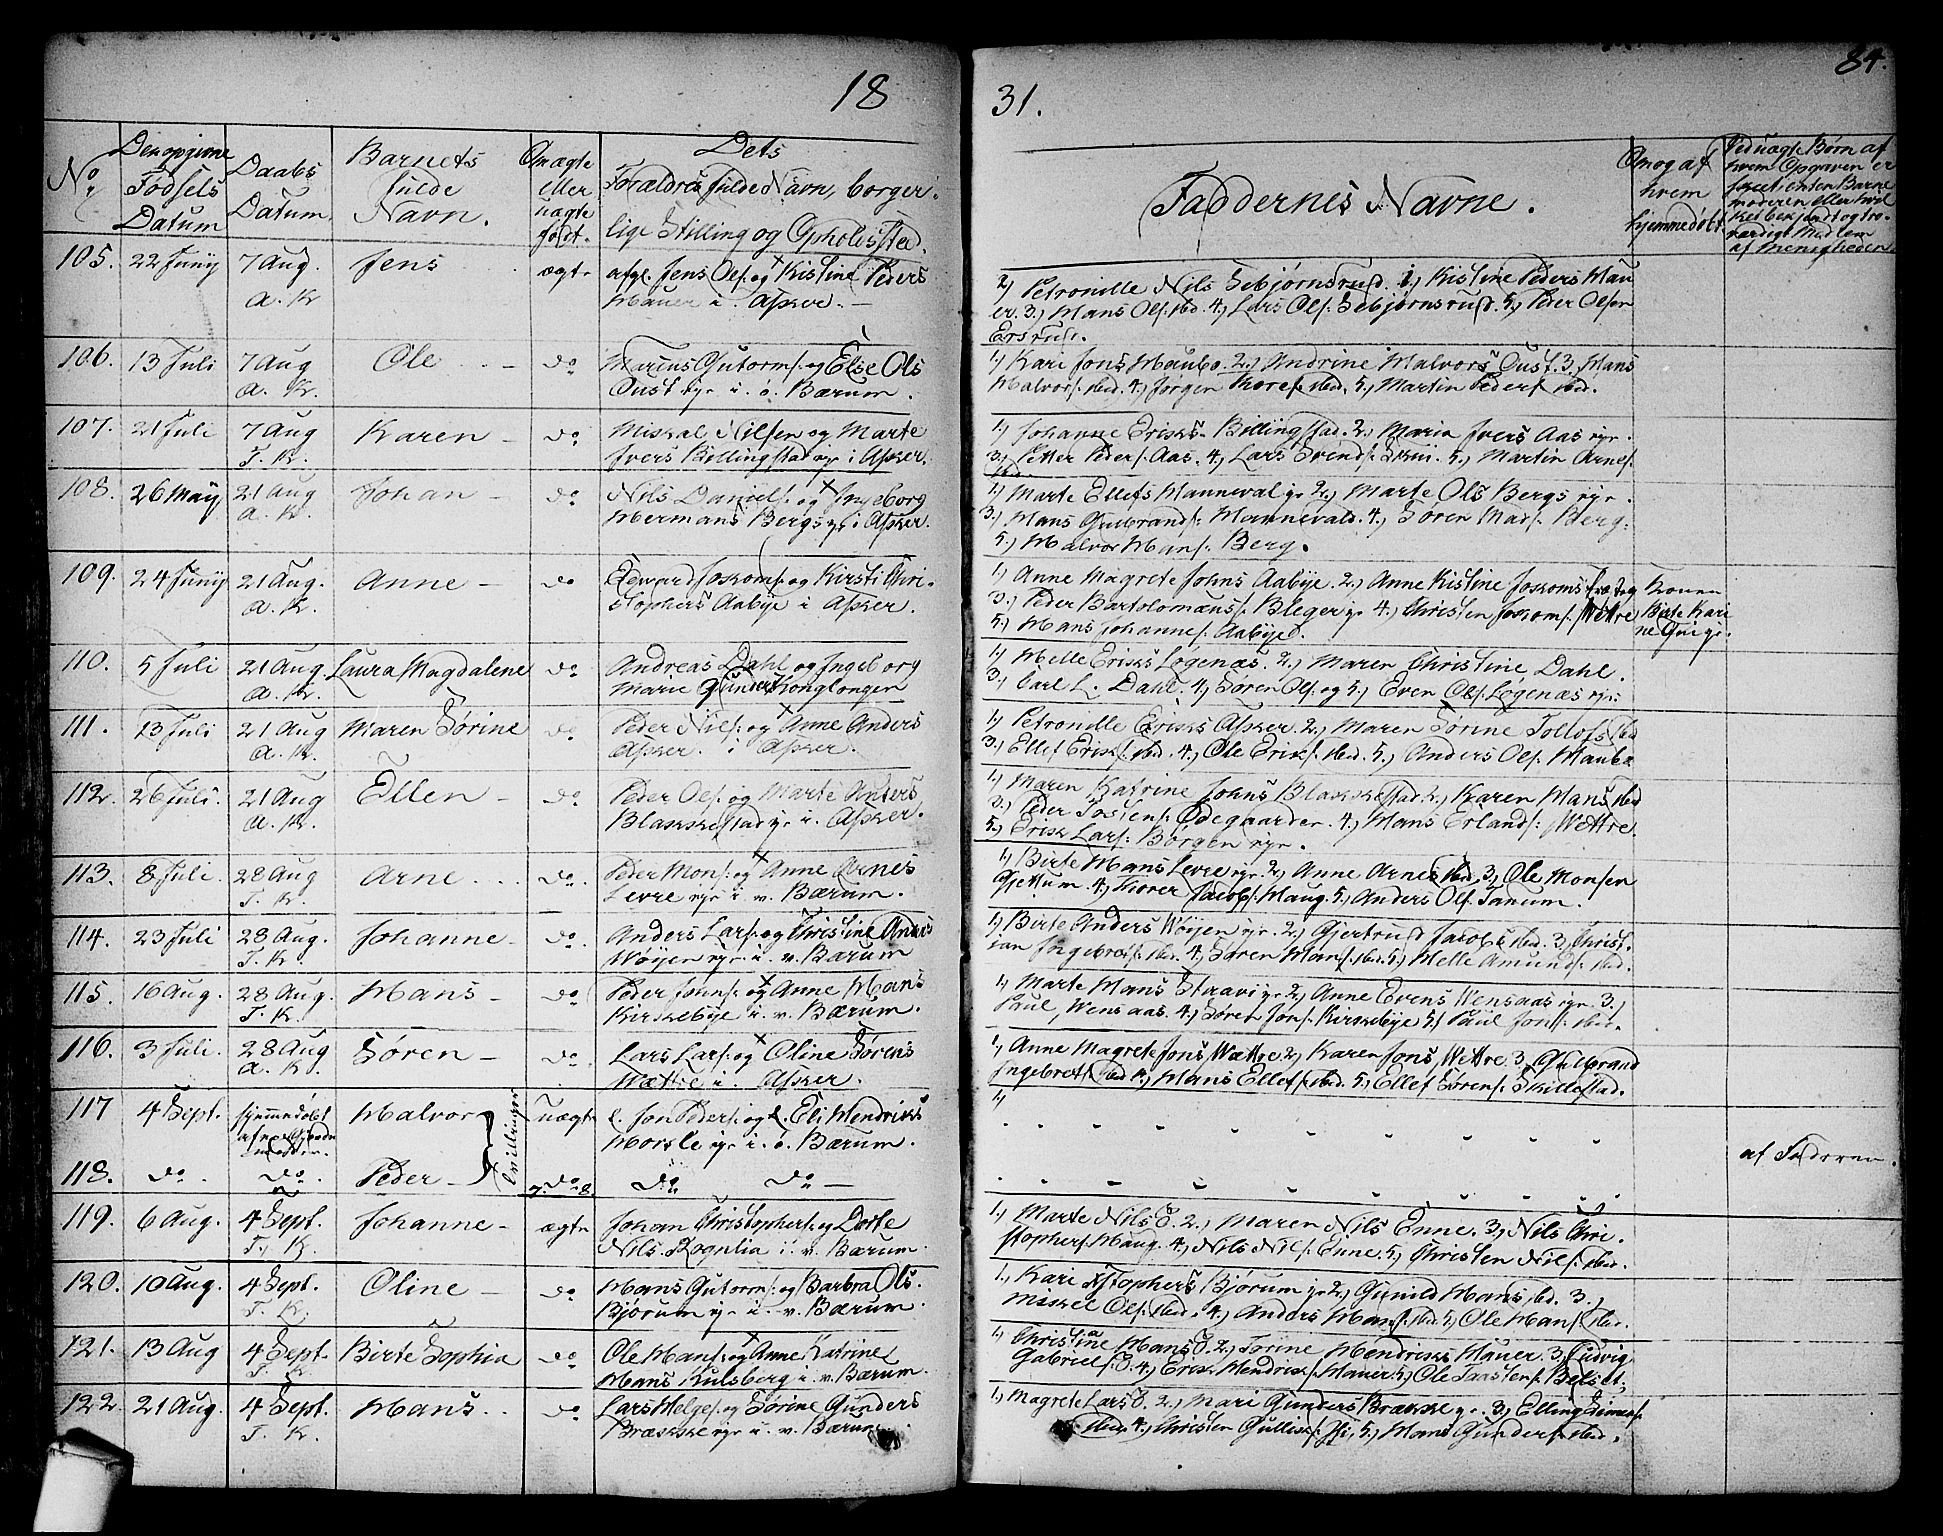 18
31.
84.
No
Den opgivne
Fødsels
Datum
Daabs
Datum.
Barnets
fulde
Navn.
Om ægte
eller
uægte
født.
Dets
Forældres fulde Navn, borger-
lige Stilling og Opholdssted.
Faddernes Navne.
Om og af
hvem
hjemmedøbt
Ved uægte Børn af
hvem Opgaven er
skeet enten Barne
moderen eller hvil
ket bekjendt og tro-
værdigt Medlem
af Menigheden
105. 22 Juny 7 Aug. Jens ægte afgl. Jens Ols. og Kistine Peders
A. K. Hauer i Asker. —
2) Petronille Nils Gebjørnsrud. 1,) Kistine Peders Hau
er. 3,) Hans Ols. ibd. 4,) Lars Ols: Gebjørnsrud. 5,) Peder Olsen
Ersrud.
106. 13 Juli 7 Aug Ole do Marcus Gutorms. og Else Ols
A. K. Oust ryr i. ø. Bærum.
1,) Kari Jons Haubo. 2,) Andrine Halvors Oust. 3, Hans
Halvors. ibd. 4,) Jørgen Thores. ibd. 5,) Martin Peders. ibd.
107. 21 Juli 7 Aug Karen - do Miskal Nilsen og Marte
T. K. Ivers Billingstad yr i Asker.
1,) Johanne Eriks Billingstad. 2,) Maria Ivers Aas ryr.
3,) Petter Peders. Aas. 4,) Lars Svends. Skui. 5,) Martin Arnes.
ibd.
108. 26 May 21 Aug Johan - do Nils Daniels. og Ingeborg
A. K. Hermans Bergs yr i Asker.
1,) Marte Ellefs Hanneval yr 2,) Marte Ols Bergs ryr.
3,) Hans Gulbrands: Hannevald. 4,) Søren Mads. Berg.
5,) Halvor Hans. Berg.
109. 24 Juny 21 Aug. Anne - do Edward Joskoms. og Kirsti Chri-
A. K. stophers Aabye i Asker.
1,) Anne Magrete Johns Aabye. 2,) Anne Kistine Joskoms
3,) Peder Bartolomæus. Bleger yr 4,) Christen Joskoms. Wettre
5,) Hans Johannes. Aabyed.
Konen
Birte Kari
110. 5 Juli 21 Aug Laura Magdalene do Andreas Dahl og Ingeborg
A. K. Marie Gunders Konglungen
1,) Helle Eriks Løgenæs. 2,) Maren Christine Dahl.
3,) Carl L. Dahl. 4,) Søren Ols. og 5,) Even Ols. Løgenæs ryr.
111. 23 Juli 21 Aug Maren Sørine do Peder Nils. og Anne Anders
A. K. Asker. i Asker.
1,) Petronille Eriks Asker. 2,) Maren Sørine Tollofs ibd
3,) Ellef Eriks. ibd. 4,) Ole Eriks. ibd. 5,) Anders Ols. Haubo
112. 26 Juli. 21 Aug Ellen - do Peder Ols. og Marte Anders
A. K. Blakkestad yr i. Asker.
1,) Maren Katrine Johns Blakkestad. 2,) Karen Hans ibd
3,) Peder Tostens. Ødegaarden. 4,) Hans Erlands: Wettre.
5,) Erik Lars: Børgen ryr.
113. 8 Juli. 28 Aug Arne do. Peder Mons. og Anne Arnes
T. K. Levre ryr i v. Bærum.
1,) Birte Hans Levre ryr. 2,) Anne Arnes ibd. 3,) Ole Monsen
Gjettum. 4,) Tiorer Jacobs. Haug. 5,) Anders Ols. Tanum.
114. 23 Juli 28 Aug. Johanne - do. Anders Lars. og Christine Anders
T. K. Wøyen ryr i. v. Bærum
1,) Birte Anders Wøyen yr. 2,) Gjertrud Jacobs ibd. 3,) Christ-
ian Ingebrets. ibd. 4,) Søren Hans. ibd. 5,) Helle Amunds. ibd.
115. 16 Aug. 28 Aug. Hans - do Peder Johns. og Anne Hans
T. K. Kirkebye i. v. Bærum.
1,) Marte Hans Stravi yr. 2,) Anne Evens Wensaas ryr. 3,)
Paul, Wensaas. 4,) Søren Jons. Kirkebye 5,) Paul Jons. ibd.
116. 3 Juli. 28 Aug Søren - do. Lars Lars. og Oline Sørens
A. K. Wættre i. Asker.
1,) Anne Magrete Jons Wættre. 2,) Karen Jons, Wettre. 3, Gulbrand
Ingebrets. ibd. 4,) Hans Ellefs. ibd. 5,) Ellef Sørens. Skillestad.
117 4 Sept. hjemmedøbt Halvor uægte Jon Peders. og Eli Hendriks
Horsle ryr i. ø. Bærum.
Tvillinger
118. do. do. Peder - do. do do —
af Faderen.
119. 6 Aug. 4 Sept. Johanne - ægte Johan Christophers. og Dorte
T. K. Nils. Rognlia i. v. Bærum.
1,) Marte Nils O. 2,) Maren Nils Enne. 3,) Nils Chri-
stophers. Haug. 4,) Nils Nils. Enne. 5,) Christen Nils. ibd.
120. 10 Aug. 4 Sept. Oline - do Hans Gutorms. og Barbra Ols.
T. K. Bjørum ryr i. v. Bærum.
1,) Kari Xstophers Bjørum yr 2,) Gunild Hans, ibd. 3,)
Miskel Ols. ibd. 4,) Anders Hans. ibd. 5,) Ole Hans. ibd.
121. 13 Aug 4 Sept. Birte Sophia do Ole Hans. og Anne Katrine
T. K. Hans Kulsberg i. v. Bærum.
1,) Christina Hans O. 2,) Torine Hendriks Hauer. 3,) Ludvig
Gabriels. O. 4,) Erik Hendriks. Hauer. 5,) Ole Taastens. Belset.
122. 21 Aug. 4 Sept. Hans. do Lars Helges. og Sørine Gunders
T. K. Brække ryr i. v. Bærum
1,) Magrete Lars O. 2,) Mari Gunders Brække yr. 3,) Elling Simens.
ibd. 4,) Christen Gulliks. Gi, 5,) Hans Gunders. ibd.